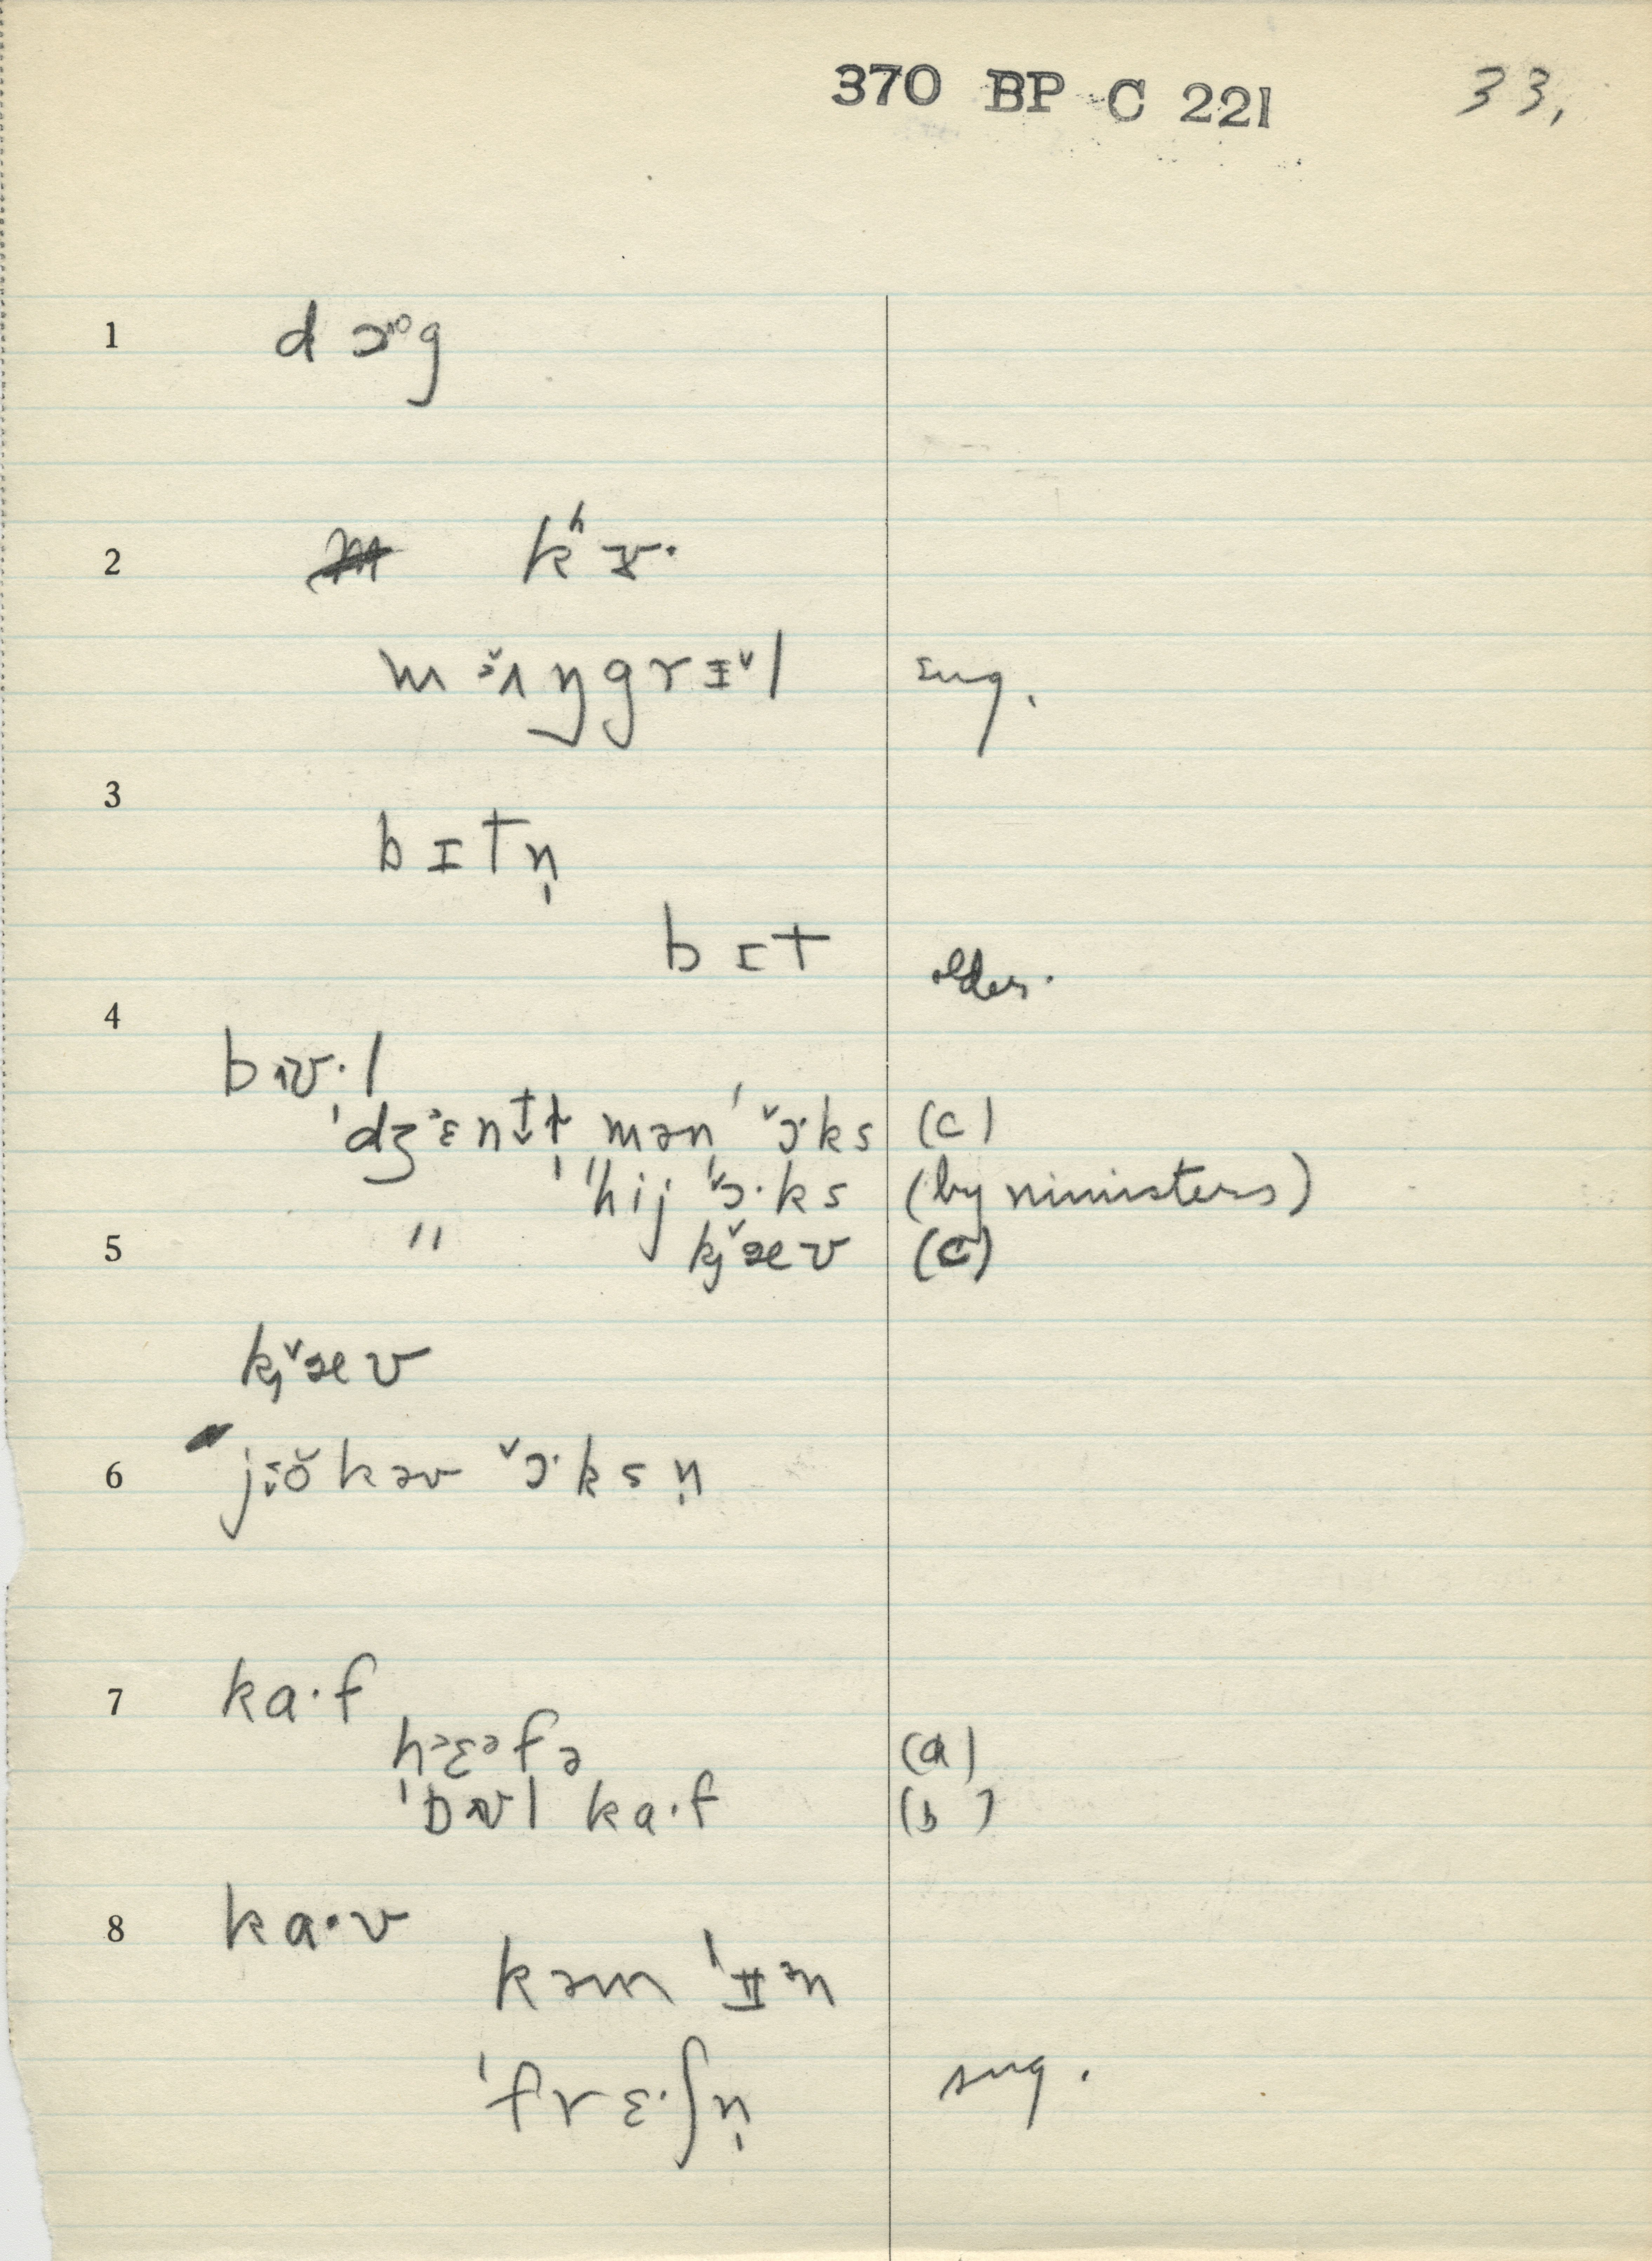 370 BP C 221 33,
1 d ɔɒg
2 kʰɤ·
mɜ̆ʌŋgrɪˇl sug.
3
bɪtn̩
bɪt older.
4
bʌʊ·l
ˈdʒɛntɪɫmən ˈˇɔ·ks (c)
ˈhij ˈˇɔ·ks (by ministers)
5 " kjˇæʊ (c)
kjˇæʊ
6 jɪŏkəʊ ˇɔ·ksn̩
7 ka·f
hɛəfə (a)
ˈbʌʊl ka·f (b)
8 ka·v
kəm ˈɪən
ˈfrɛ·ʃn̩ sug.